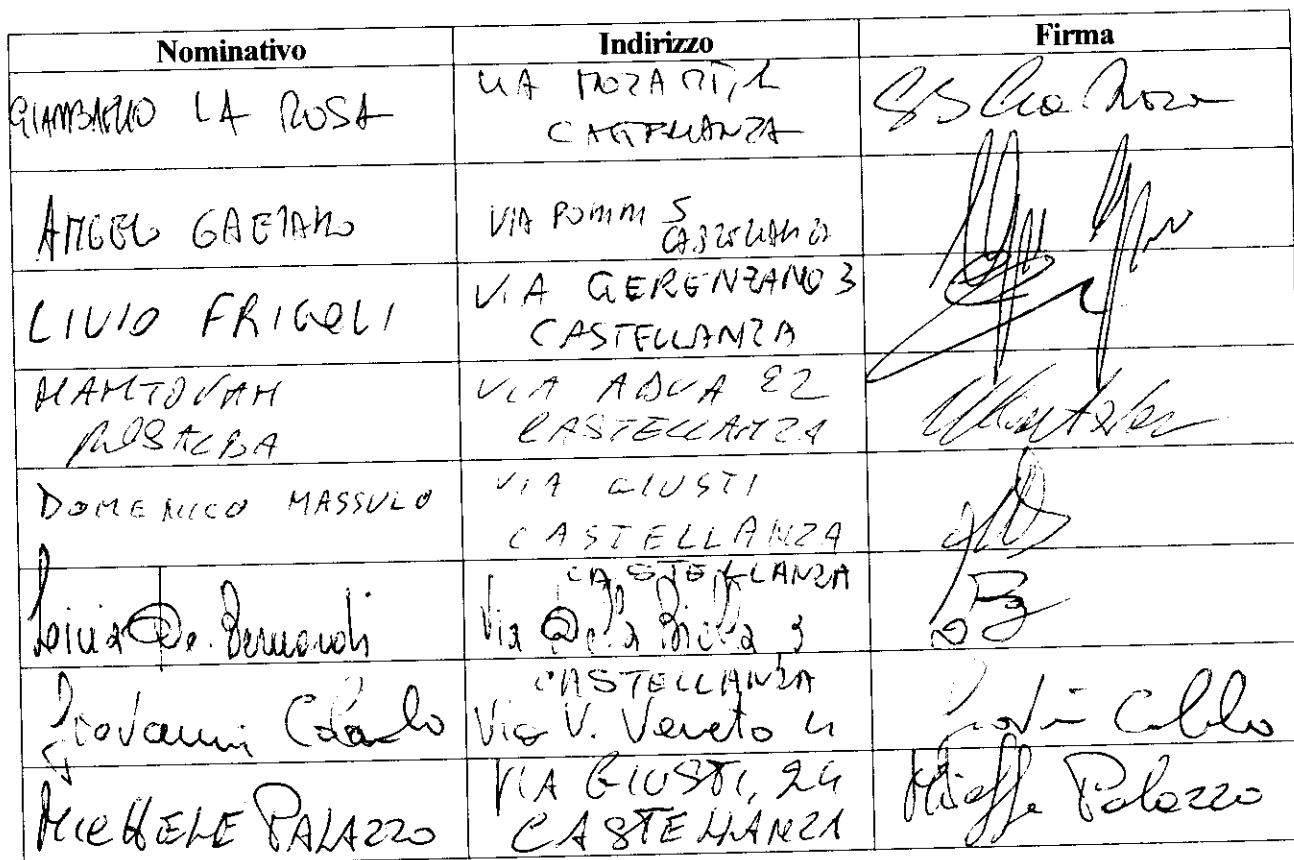 Nominativo Indirizzo Firma
LA ROSA
VIA MOZART, 1
CASTELLANZA
ANGELO GAETANO
VIA POMINI 5
CASTELLANZA
LIVIO FRIGOLI
VIA GERENZANO 3
CASTELLANZA
MANTOVAN
ROSALBA
VIA ADUA 22
CASTELLANZA
DOMENICO MASSULO
VIA GIUSTI
CASTELLANZA
De Bernardi
CASTELLANZA
Via 3
Giovanni
CASTELLANZA
Via V. Veneto 4
Giovanni
MICHELE PALAZZO
VIA GIUSTI, 24
CASTELLANZA
Palazzo